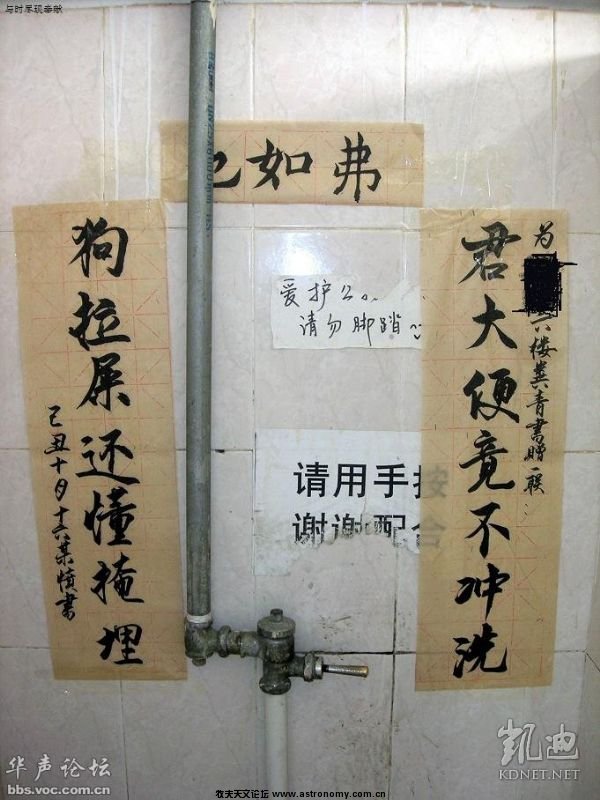 弗如也
为
六楼粪青書赠一联
君大便竟不冲洗
狗拉屎还懂掩埋
己丑十月十六某愤書
爱护公
请勿脚踏
请用手按
谢谢配合
凯迪
KDNET.NET
华声论坛
bbs.voc.com.cn
牧夫天文论坛 www.astronomy.com.cn